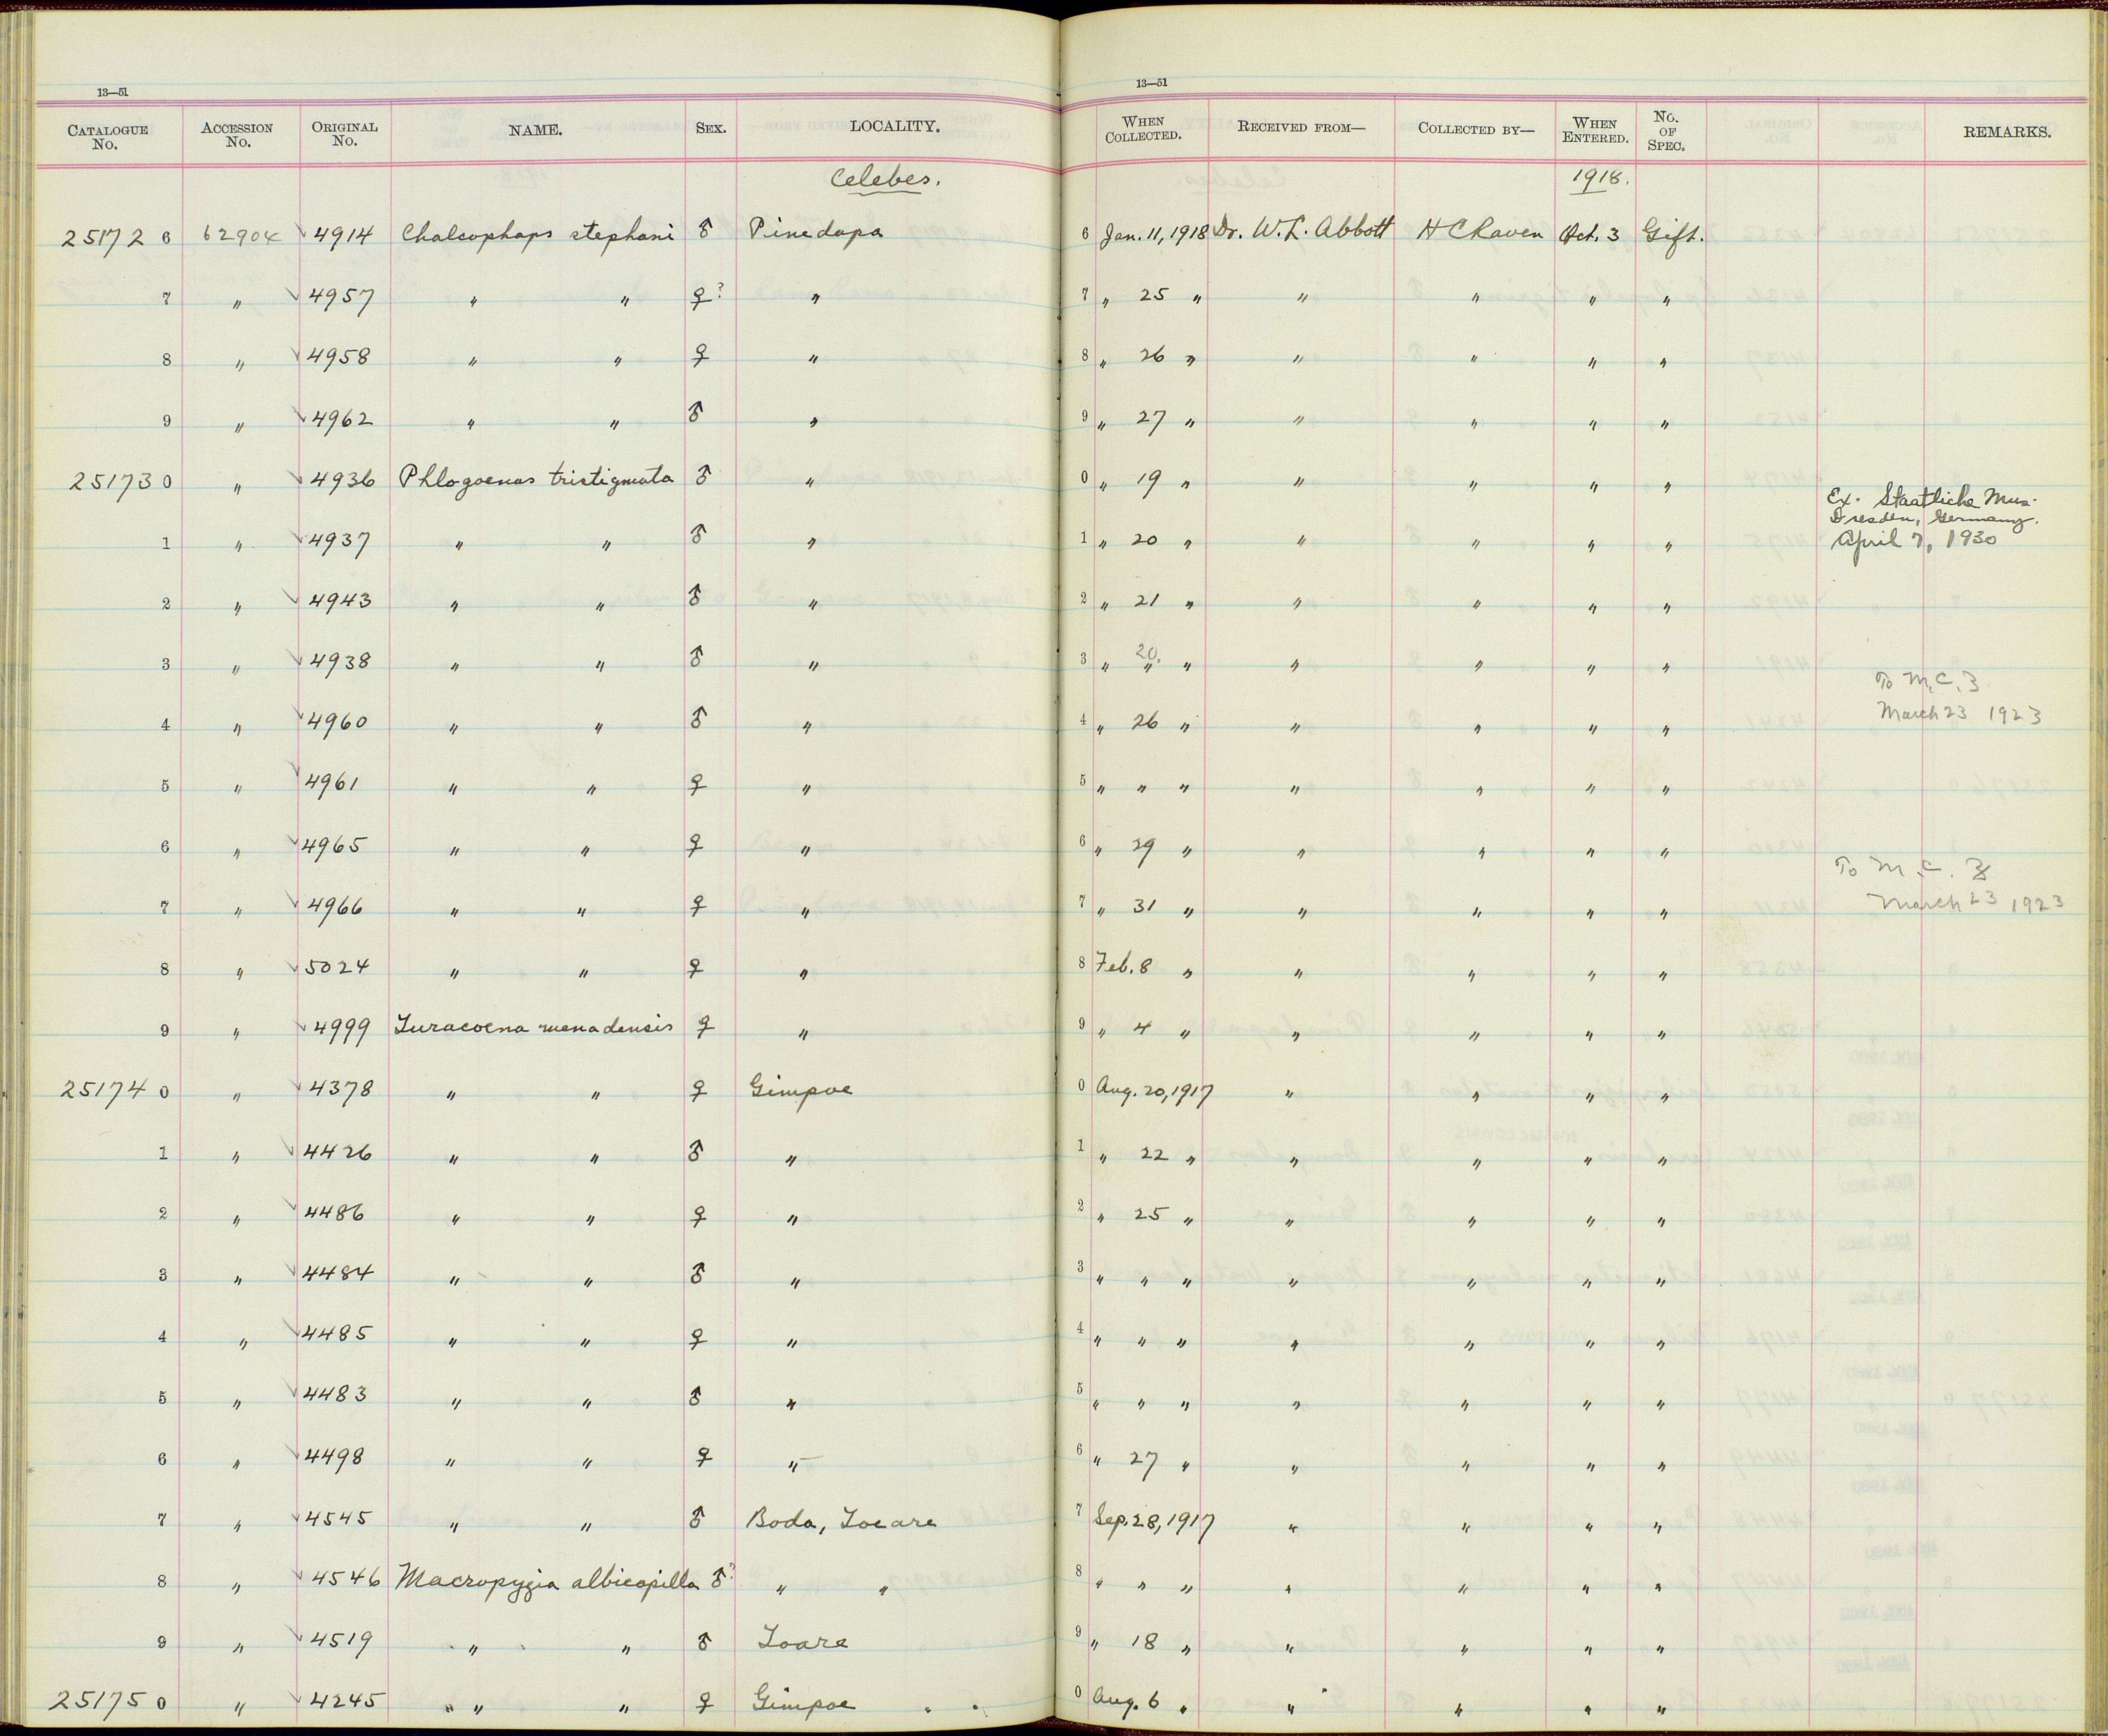 13—51 13—51
CATALOGUE No. ACCESSION No. ORIGINAL No. NAME. SEX. LOCALITY. WHEN COLLECTED. RECEIVED FROM— COLLECTED BY— WHEN ENTERED. No. OF SPEC. REMARKS.
Celebes. 1918.
25172 6 62904 √ 4914 Chalcophaps stephani ♂ Pinedapa 6 Jan. 11, 1918 Dr. W. L. Abbott H C Raven Oct. 3 Gift.
7 " √ 4957 " " ♀? " 7 " 25 " " " " "
8 " √ 4958 " " ♀ " 8 " 26 " " " " "
9 " √ 4962 " " ♂ " 9 " 27 " " " " "
25173 0 " √ 4936 Phlogoenas tristigmata ♂ " 0 " 19 " " " " "
Ex. Staatliche Mus.
Dresden, Germany.
1 " √ 4937 " " ♂ " 1 " 20 " " " " " April 7, 1930
2 " √ 4943 " " ♂ " 2 " 21 " " " " "
3 " √ 4938 " " ♂ " 3 " 20. " " " " " "
To M.C.Z
4 " √ 4960 " " ♂ " 4 " 26 " " " " " March 23 1923
5 " √ 4961 " " ♀ " 5 " " " " " " "
6 " √ 4965 " " ♀ " 6 " 29 " " " " "
To M.C.Z
7 " √ 4966 " " ♀ " 7 " 31 " " " " " March 23 1923
8 " √ 5024 " " ♀ " 8 Feb. 8 " " " " "
9 " √ 4999 Turacoena menadensis ♀ " 9 " 4 " " " " "
25174 0 " √ 4378 " " ♀ Gimpoe 0 Aug. 20, 1917 " " " "
1 " √ 4426 " " ♂ " 1 " 22 " " " " "
2 " √ 4486 " " ♀ " 2 " 25 " " " " "
3 " √ 4484 " " ♂ " 3 " " " " " " "
4 " √ 4485 " " ♀ " 4 " " " " " " "
5 " √ 4483 " " ♂ " 5 " " " " " " "
6 " √ 4498 " " ♀ " 6 " 27 " " " " "
7 " √ 4545 " " ♂ Boda, Toeare 7 Sep. 28, 1917 " " " "
8 " √ 4546 Macropygia albicapilla ♂? " " 8 " " " " " " "
9 " √ 4519 " " ♂ Toare 9 " 18 " " " " "
25175 0 " √ 4245 " " ♀ Gimpoe 0 Aug. 6 " " " " "